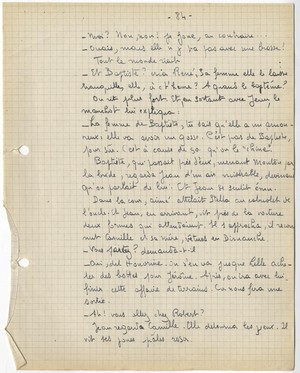 - 84 -
- Moi? Non, moi je joue, au contraire...
- Ouais, mais elle n'y va pas avec une brosse!
Tout le monde riait
- Et Baptiste? cria René, Sa femme elle le laisse
tranquille, elle, à c't'heure? À quand le baptême?
On rit plus fort. Et en sortant avec Jean le
manchot lui expliqua:
- La femme de Baptiste, tu sais qu'elle a un
elle va avoir un gosse. C'est pas de Baptiste,
pour sûr. C'est à cause de ça qu'on le
Baptiste, qui passait près d'eux, menant Mouton par
la bride, regarda Jean d'un air misérable, devinant
qu'on parlait de lui. Et Jean se sentit ému.
Dans la cour, Aimé attelait Dalia au cabriolet de
l'oncle. Et Jean, en arrivant, vit près de la voiture
deux formes qui attendaient. Il s'approcha, il reconnut
Camille et sa mère, vêtues en Dimanche
- Vous partez? demanda-t-il
- Oui, dit Honorine. On s'en va jusque Lille acheter
des bottes pour Jérôme. Après, on ira avec lui,
finir cette affaire de terrains. Ça nous fera une
sortie.
- Ah! vous allez chez Robert?
Jean regarda Camille. Elle détourna les yeux. Il
vit ses joues pâles rosir.